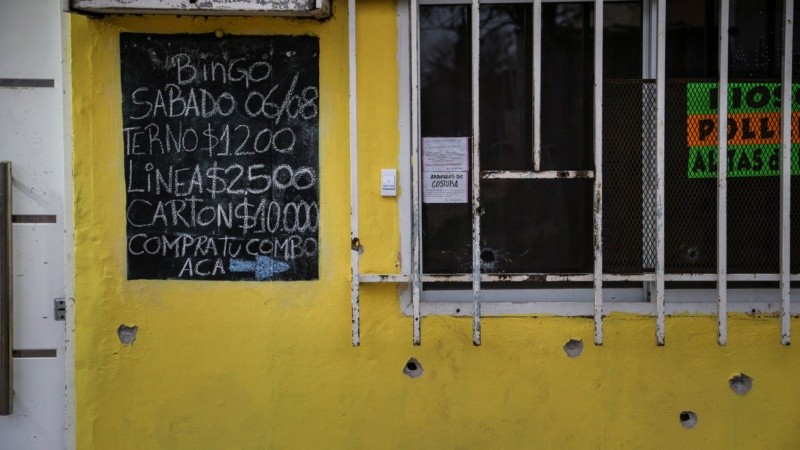 BINGO
SABADO 06/08
TERNO $1200
LINEA $2500
CARTON $10.000
COMPRA TU COMBO
ACA
ARREGLOS DE
COSTURA